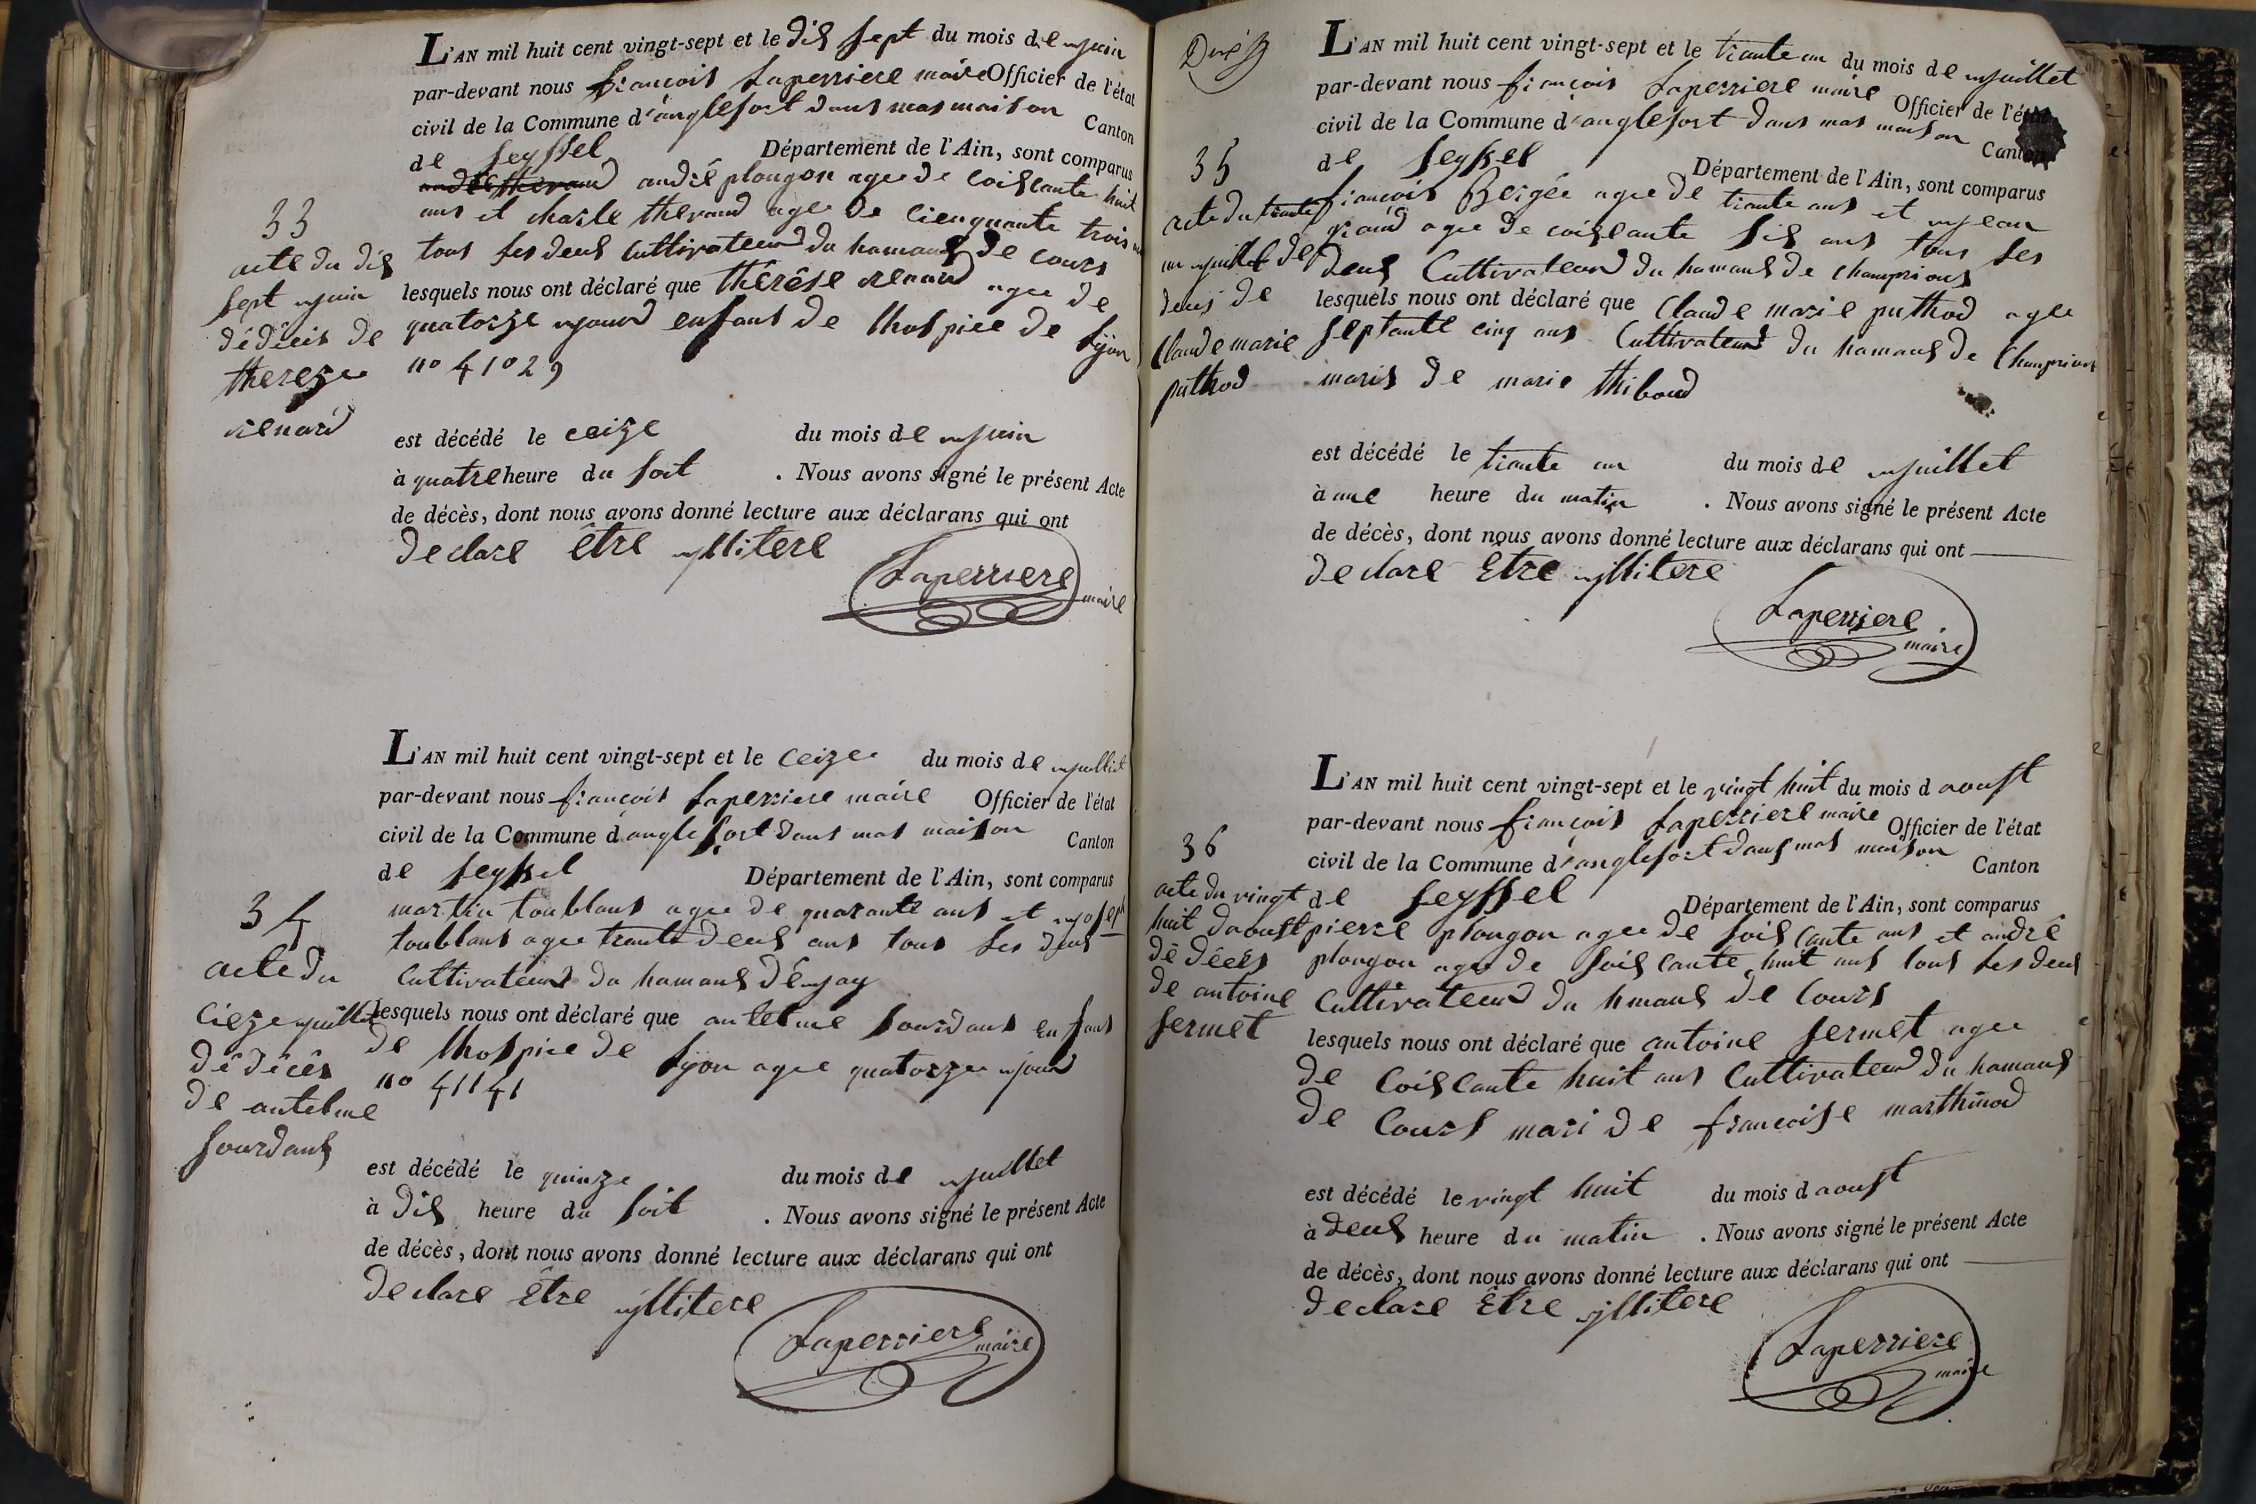 L'AN mil huit cent vingt-sept et le dix sept du mois de juin
par-devant nous françois Laperriere maire Officier de l'état
civil de la Commune d'anglefort dans mas maison Canton
de Seyssel Département de l'Ain, sont comparus
andré plongon agee de coiscante huit
ans et charle thevand agee de cienquante trois
tous ses deux Cultivateurs du hamaux de cours
lesquels nous ont déclaré que thérêse renard agee de
quatorze jours enfans de lhospice de Lyon
no 41029
33
acte du dix
sept juin
dédécis de
thereze
renard
est décédé le ceize du mois de juin
à quatre heure du soit . Nous avons signé le présent Acte
de décès, dont nous avons donné lecture aux déclarans qui ont
declare être yllitere
Laperriere
maire
L'AN mil huit cent vingt-sept et le ceize du mois de juilliet
par-devant nous françois Laperriere maire Officier de l'état
civil de la Commune d'anglefort dans mas maison Canton
de Seyssel Département de l'Ain, sont comparus
martin toublans agee de quarante ans et joseph
toublans agee trante deux ans tous ses deux
Cultivateurs du hamaux déjay
lesquels nous ont déclaré que antelme Sourdans enfans
de lhospice de Lyon agee quatorze jours
no 41141
34
acte du
cieze juillet
dédécés
de antelme
Sourdans
est décédé le quinze du mois de juillet
à dix heure du soit . Nous avons signé le présent Acte
de décès, dont nous avons donné lecture aux déclarans qui ont
declare être yllitere
Laperriere
maire
L'AN mil huit cent vingt-sept et le trante un du mois de juillet
par-devant nous françois Laperriere maire Officier de l'état
civil de la Commune d'anglefort dans mas maison Canton
de Seyssel Département de l'Ain, sont comparus
françois Bergée agee de trante ans et jean
agee de coizsante six ans tous ses
deux Cultivateurs du hamaux de champrions
lesquels nous ont déclaré que Claude marie puthod agee
septante cinq ans Cultivateur du hamaux de Champrions
maris de marie thiboud
35
acte du trante
un juillet de
deces de
Claude marie
puthod
est décédé le trante un du mois de juillet
à une heure du matin . Nous avons signé le présent Acte
de décès, dont nous avons donné lecture aux déclarans qui ont
declare Etre yllitere
Laperriere
maire
L'AN mil huit cent vingt-sept et le vingt huit du mois d aoust
par-devant nous françois Laperriere maire Officier de l'état
civil de la Commune d'anglefort dans mas maison Canton
de Seyssel Département de l'Ain, sont comparus
pierre plongon agee de soiscante ans et andrê
plongon agee de soiscante huit ans tous ses deux
Cultivateurs du hmaux de Cours
lesquels nous ont déclaré que antoine fermet agee
de coiscante huit ans Cultivateur du hamaux
de Cours mari de françoise marthinod
36
acte du vingt
huit daoust
dédécés
de antoine
fermet
est décédé le vingt huit du mois d aoust
à deux heure du matin . Nous avons signé le présent Acte
de décès, dont nous avons donné lecture aux déclarans qui ont
declare Être yllitere
Laperriere
maire